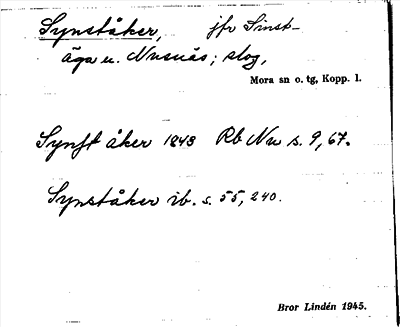 Synståker, jfr Sinst-
äga u. Nusnäs; skog,
Mora sn o. tg, Kopp. l.
Synst åker 1848 Rb Nu s. 9, 67.
Synståker ib. s. 55, 240.
Bror Lindén 1945.